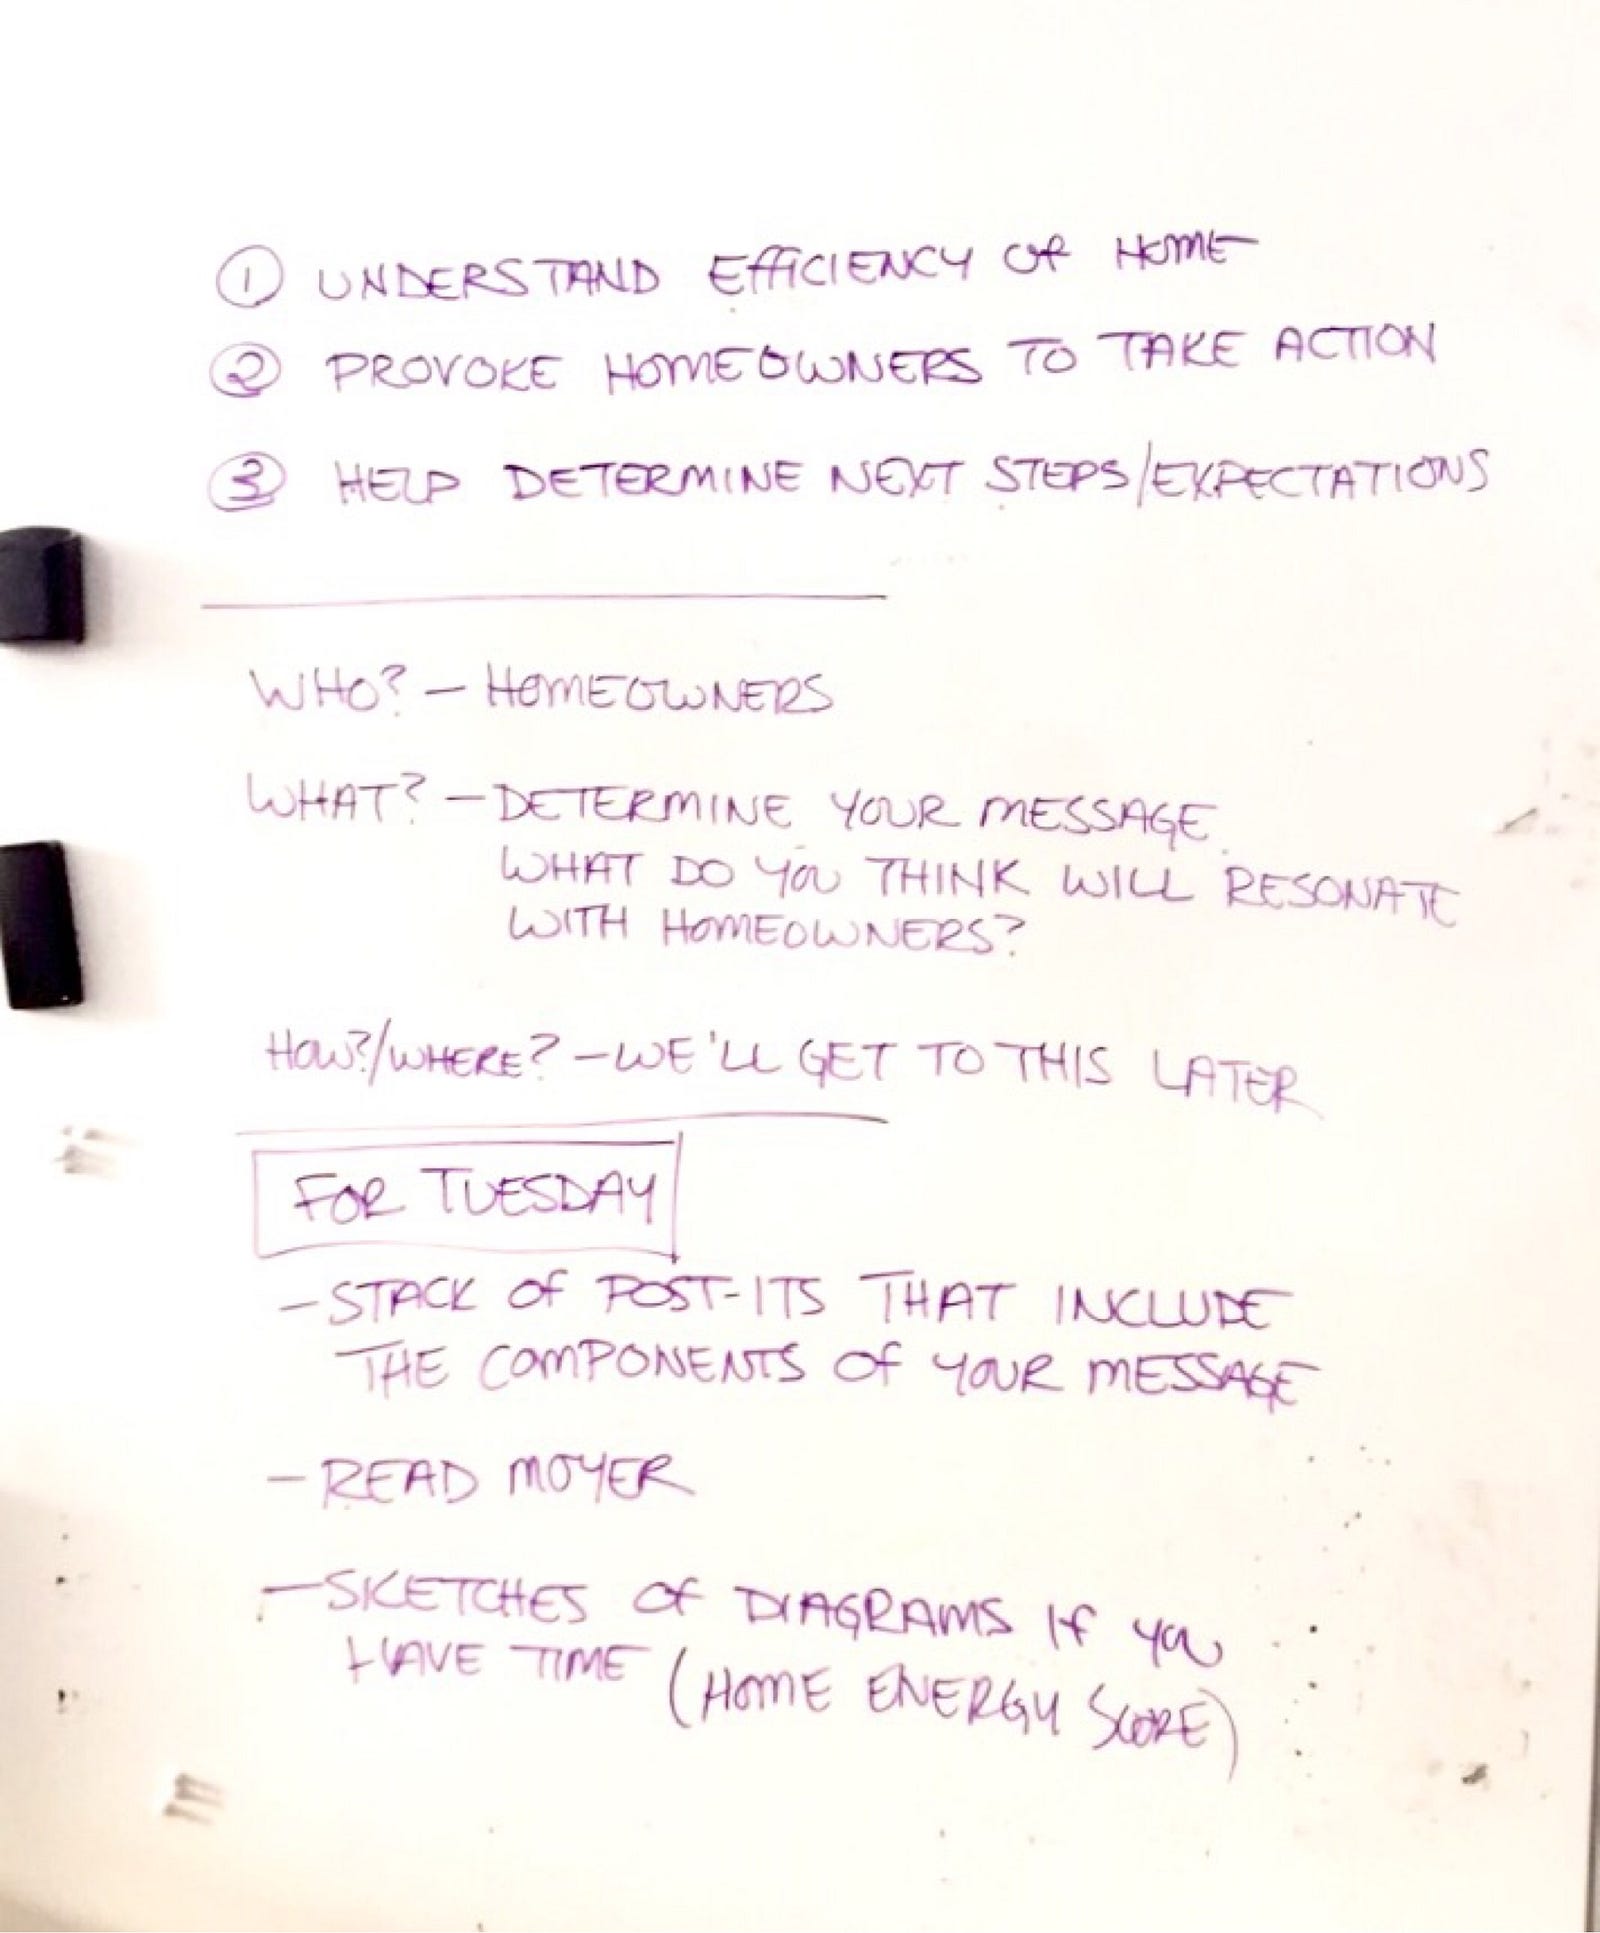 ① UNDERSTAND EFFICIENCY OF HOME
② PROVOKE HOMEOWNERS TO TAKE ACTION
③ HELP DETERMINE NEXT STEPS/EXPECTATIONS
WHO? – HOMEOWNERS
WHAT? – DETERMINE YOUR MESSAGE.
WHAT DO YOU THINK WILL RESONATE
WITH HOMEOWNERS?
HOW?/WHERE? – WE'LL GET TO THIS LATER
FOR TUESDAY
– STACK OF POST-ITS THAT INCLUDE
THE COMPONENTS OF YOUR MESSAGE
– READ MOYER
– SKETCHES OF DIAGRAMS IF YOU
HAVE TIME (HOME ENERGY SCORE)